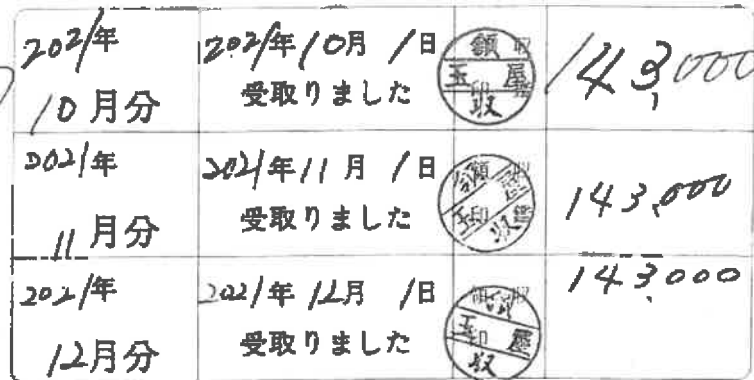 2021年
10月分
2021年10月1日
受取りました
領収
玉屋
143,000
2021年
11月分
2021年11月1日
受取りました
玉
143,000
2021年
12月分
2021年12月1日
受取りました
玉屋
143,000